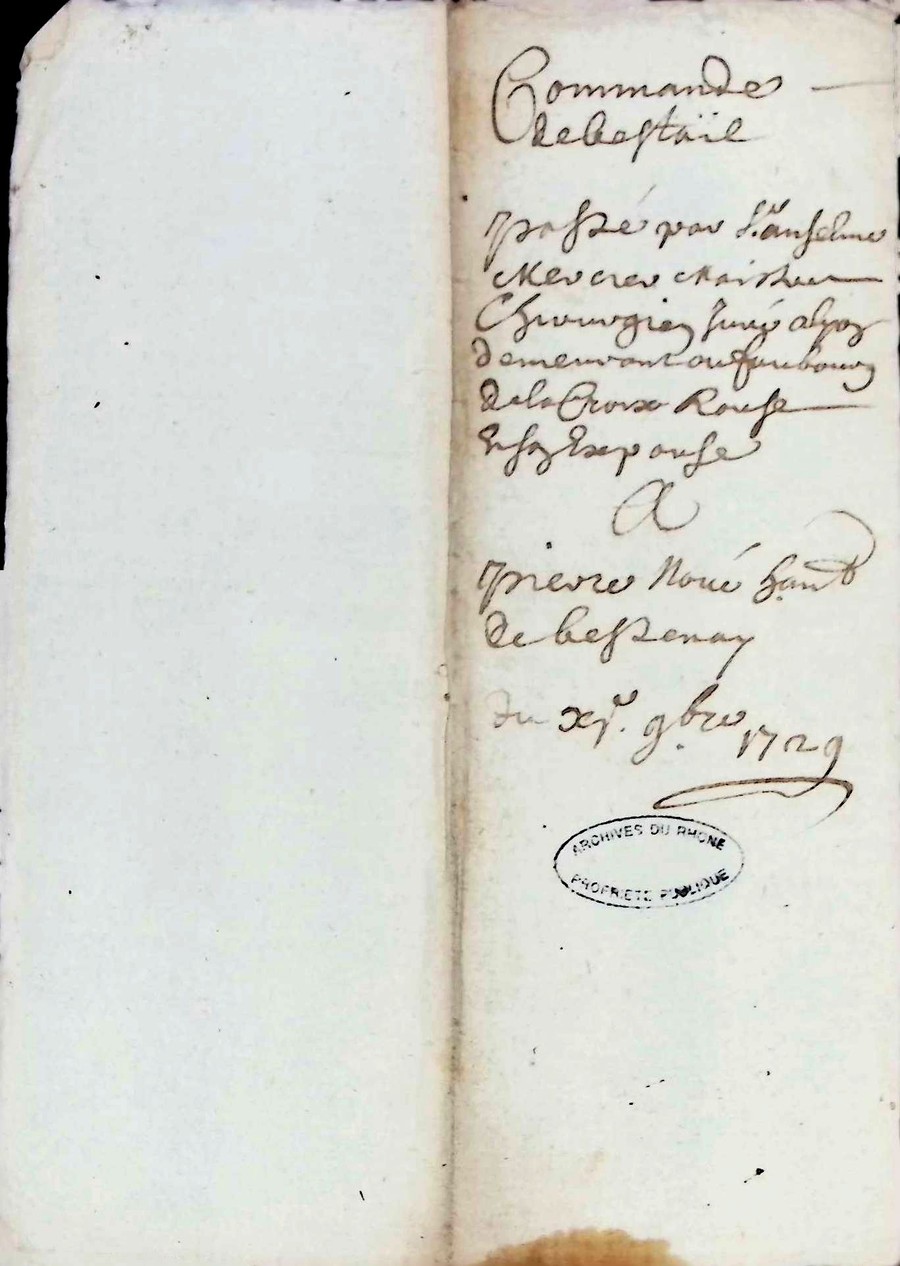 Commande
de bestail
passé par Sr. anselme
Mercier Maistre
Chirurgien Juré alyon
demeurant au faubourg
de la Croix Rousse
Et son Espouse
A
pierre Noué hant
de bessenay
du xje. 9bre 1729
ARCHIVES DU RHONE
PROPRIETE PUBLIQUE